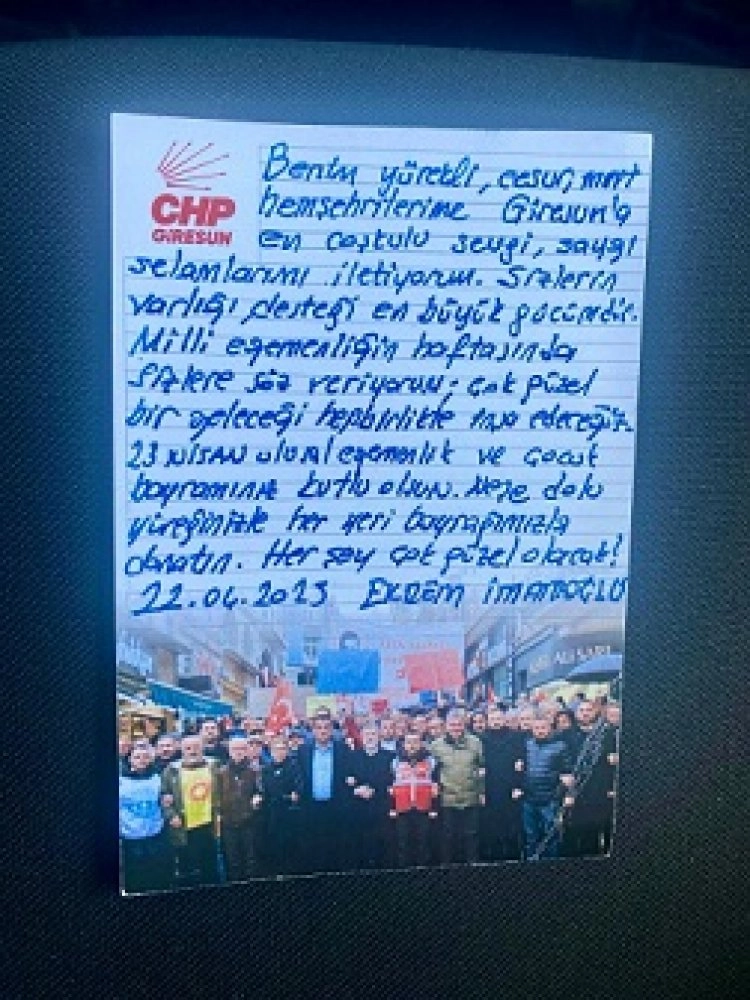 CHP
GİRESUN
Benim yürekli, cesur, mert
hemşehrilerime Giresun'a
en coşkulu sevgi, saygı
selamlarımı iletiyorum. Sizlerin
varlığı, desteği en büyük gücümdür.
Milli egemenliğin haftasında
sizlere söz veriyorum; çok güzel
bir geleceği hepbirlikte inşa edeceğiz.
23 NİSAN ulusal egemenlik ve çocuk
bayramınız kutlu olsun. Neşe dolu
yüreğinizle her yeri bayrağımızla
donatın. Her şey çok güzel olacak!
22.04.2025 EKREM İMAMOĞLU
ALİ SARI